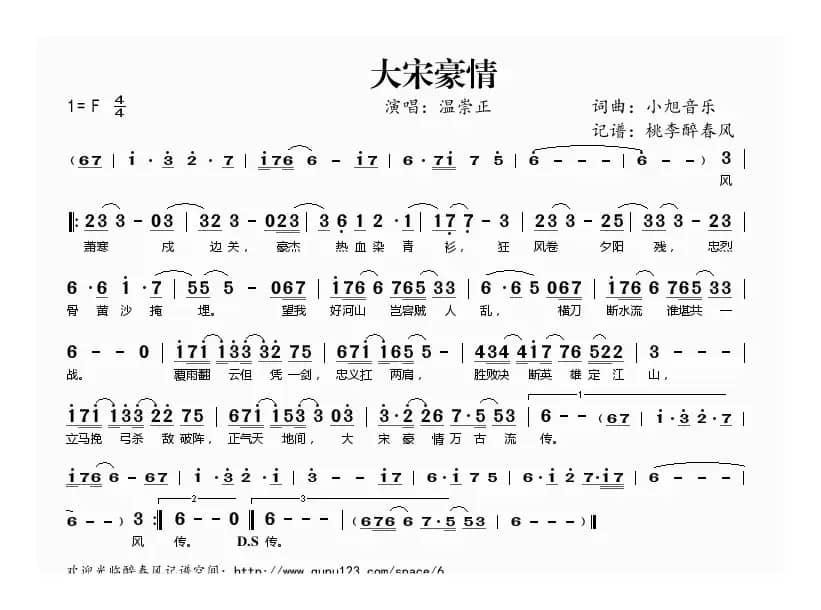 大宋豪情
1= F 4/4 演唱：温崇正 词曲：小旭音乐
记谱：桃李醉春风
( 67 | i · 3 2 · 7 | i76 6 - i7 | 6 · 7i 7 5 | 6 - - - | 6 - - ) 3 |
风
‖: 23 3 - 03 | 32 3 - 023 | 3 6 1 2 · 1 | 1 7 7 - 3 | 23 3 - 25 | 33 3 - 23 |
萧寒 戍 边关， 豪杰 热血染青 衫， 狂 风卷 夕阳 残， 忠烈
6 · 6 i · 7 | 55 5 - 067 | i76 6 765 33 | 6 · 6 5 067 | i76 6 765 33 |
骨 黄 沙 掩 埋。 望我 好河山 岂容贼 人 乱， 横刀 断水流 谁堪共 一
6 - - 0 | i7i i33 32 75 | 67i i65 5 - | 434 4i7 76 522 | 3 - - - |
战。 覆雨翻 云但 凭 一剑， 忠义扛 两肩， 胜败决 断英 雄 定 江 山，
i7i i33 22 75 | 67i i53 3 03 | 3·2 26 7·5 53 | 1 6 - - ( 67 | i·3 2·7 |
立马挽 弓杀 敌 破阵， 正气天 地间， 大 宋 豪 情 万 古 流 传。
i76 6 - 67 | i · 3 2 · i | 3 - - i7 | 6·i 7 5 | 6·i 2 7·i7 | 6 - - - |
6 - - ) 3 :‖ 2 6 - - 0 ‖ 3 6 - - - | ( 676 6 7·5 53 | 6 - - - ) ‖
风 传。 D.S 传。
欢迎光临醉春风记谱空间：http://www.qupu123.com/space/6